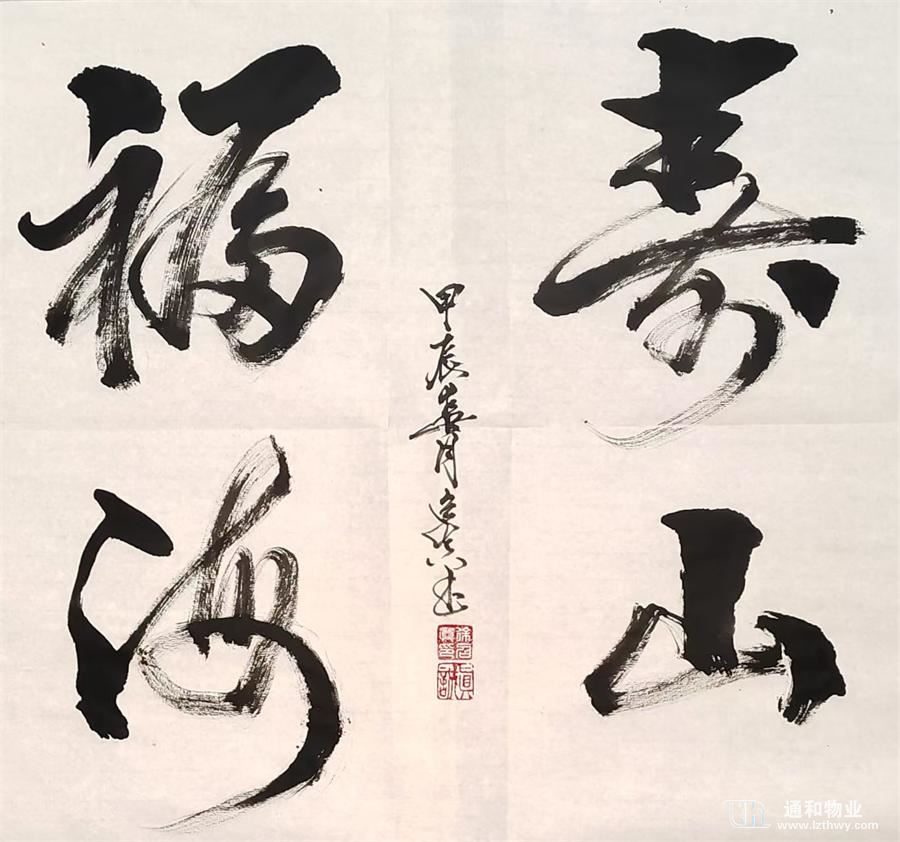 寿山
福海
甲辰春月
通和物业
www.lzthwy.com